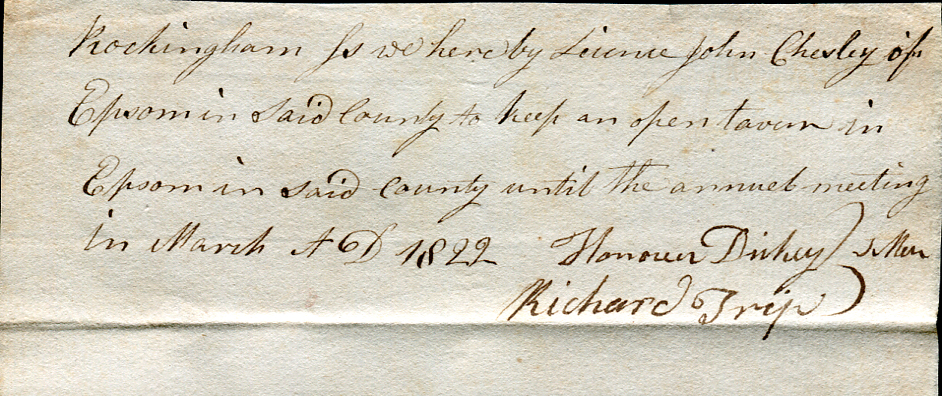 Rockingham Ss we hereby Licence John Chesley of
Epsom in said County to keep an open tavern in
Epsom in said county until the annuel meeting
in March A D 1822 Honour Dickey
Richard Trip